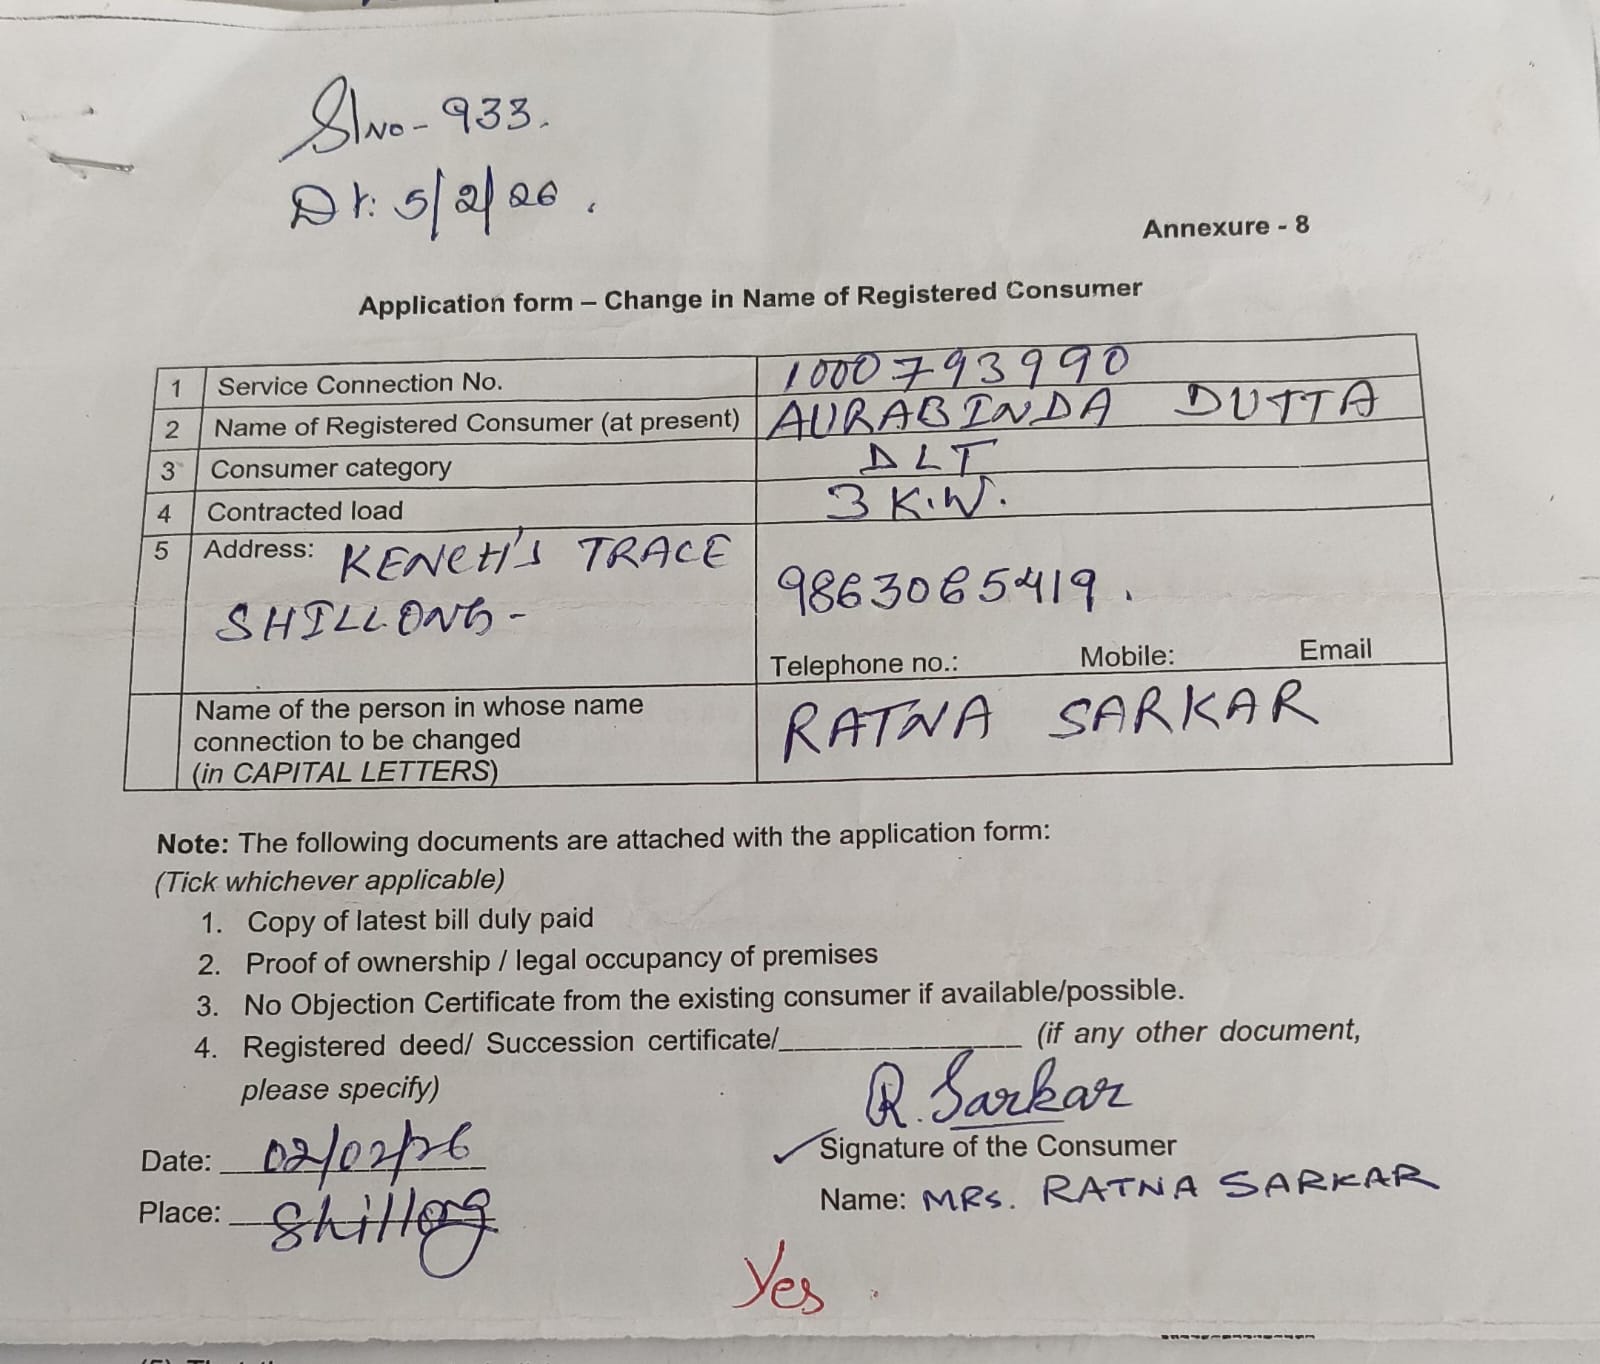 Sl No - 933.
Dt: 5/2/26.
Annexure - 8
Application form – Change in Name of Registered Consumer
1 Service Connection No. 1000793990
2 Name of Registered Consumer (at present) AURABINDA DUTTA
3 Consumer category DLT
4 Contracted load 3 K.W.
5 Address: KENCH'S TRACE
SHILLONG -
9863065419.
Telephone no.: Mobile: Email
Name of the person in whose name
connection to be changed
(in CAPITAL LETTERS)
RATNA SARKAR
Note: The following documents are attached with the application form:
(Tick whichever applicable)
1. Copy of latest bill duly paid
2. Proof of ownership / legal occupancy of premises
3. No Objection Certificate from the existing consumer if available/possible.
4. Registered deed/ Succession certificate/_______________ (if any other document,
please specify)
R. Sarkar
Date: 02/02/26
✓ Signature of the Consumer
Place: Shillong
Name: MRS. RATNA SARKAR
Yes.